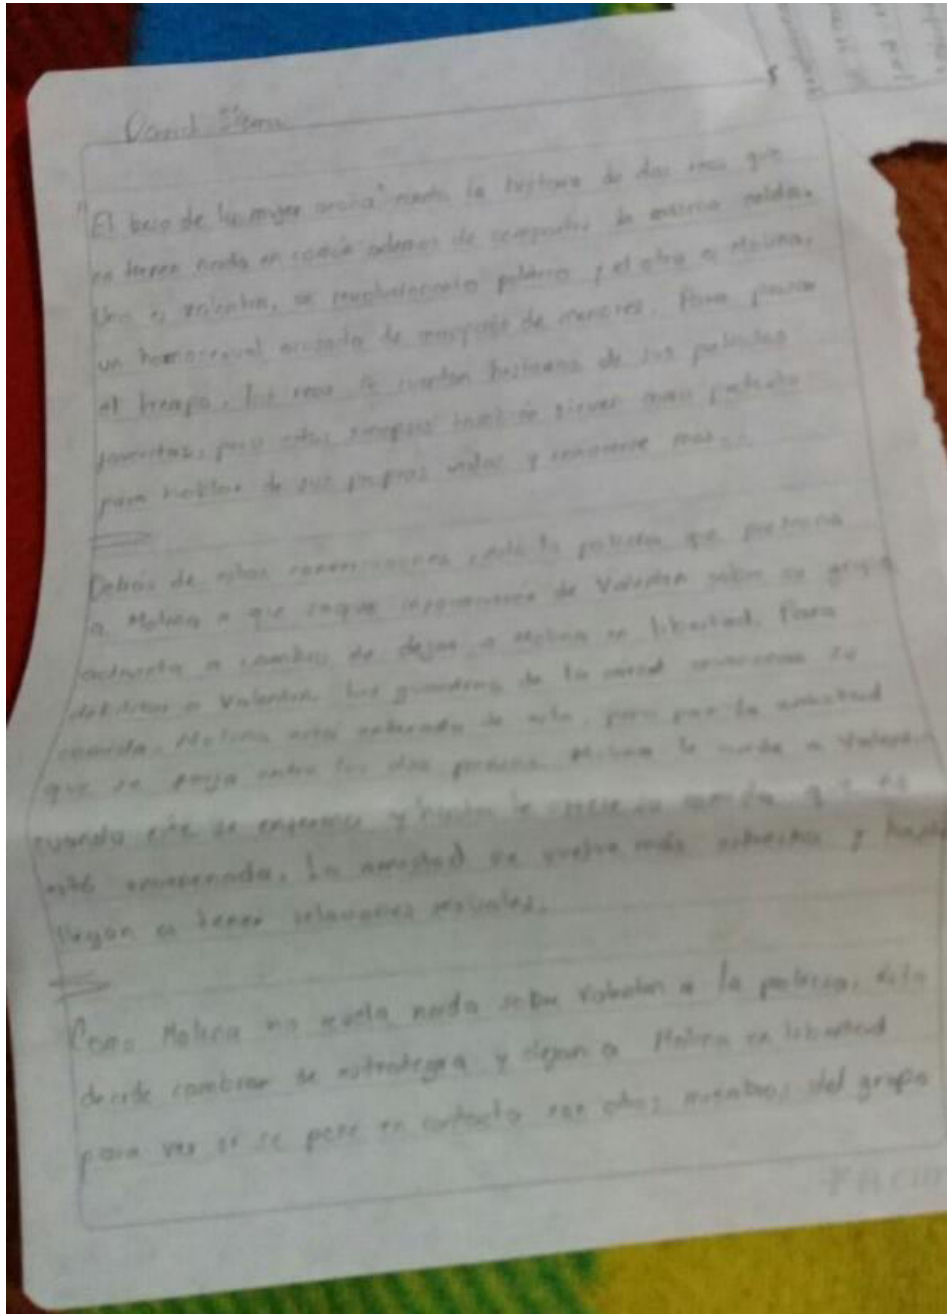 David Sierra
"El beso de la mujer araña" narra la historia de dos reos que
no tienen nada en común además de compartir la misma celda.
Uno es Valentín, un revolucionario político y el otro es Molina,
un homosexual acusado de corrupción de menores. Para pasar
el tiempo, los reos se cuentan historias de sus películas
favoritas, pero estas sinopsis también sirven como pretexto
para hablar de sus propias vidas y conocerse más.
Detrás de estas conversaciones está la policía que presiona
a Molina a que saque información de Valentín sobre su grupo
activista a cambio de dejar a Molina en libertad. Para
debilitar a Valentín los guardias de la cárcel envenenan su
comida. Molina está enterado de esto, pero por la amistad
que se forja entre los dos presos, Molina le cuida a Valentín
cuando este se enferma y hasta le ofrece su comida que no
está envenenada. La amistad se vuelve más estrecha y hasta
llegan a tener relaciones sexuales.
Como Molina no suelta nada sobre Valentín a la policía, esta
decide cambiar de estrategia y dejan a Molina en libertad
para ver si se pone en contacto con otros miembros del grupo